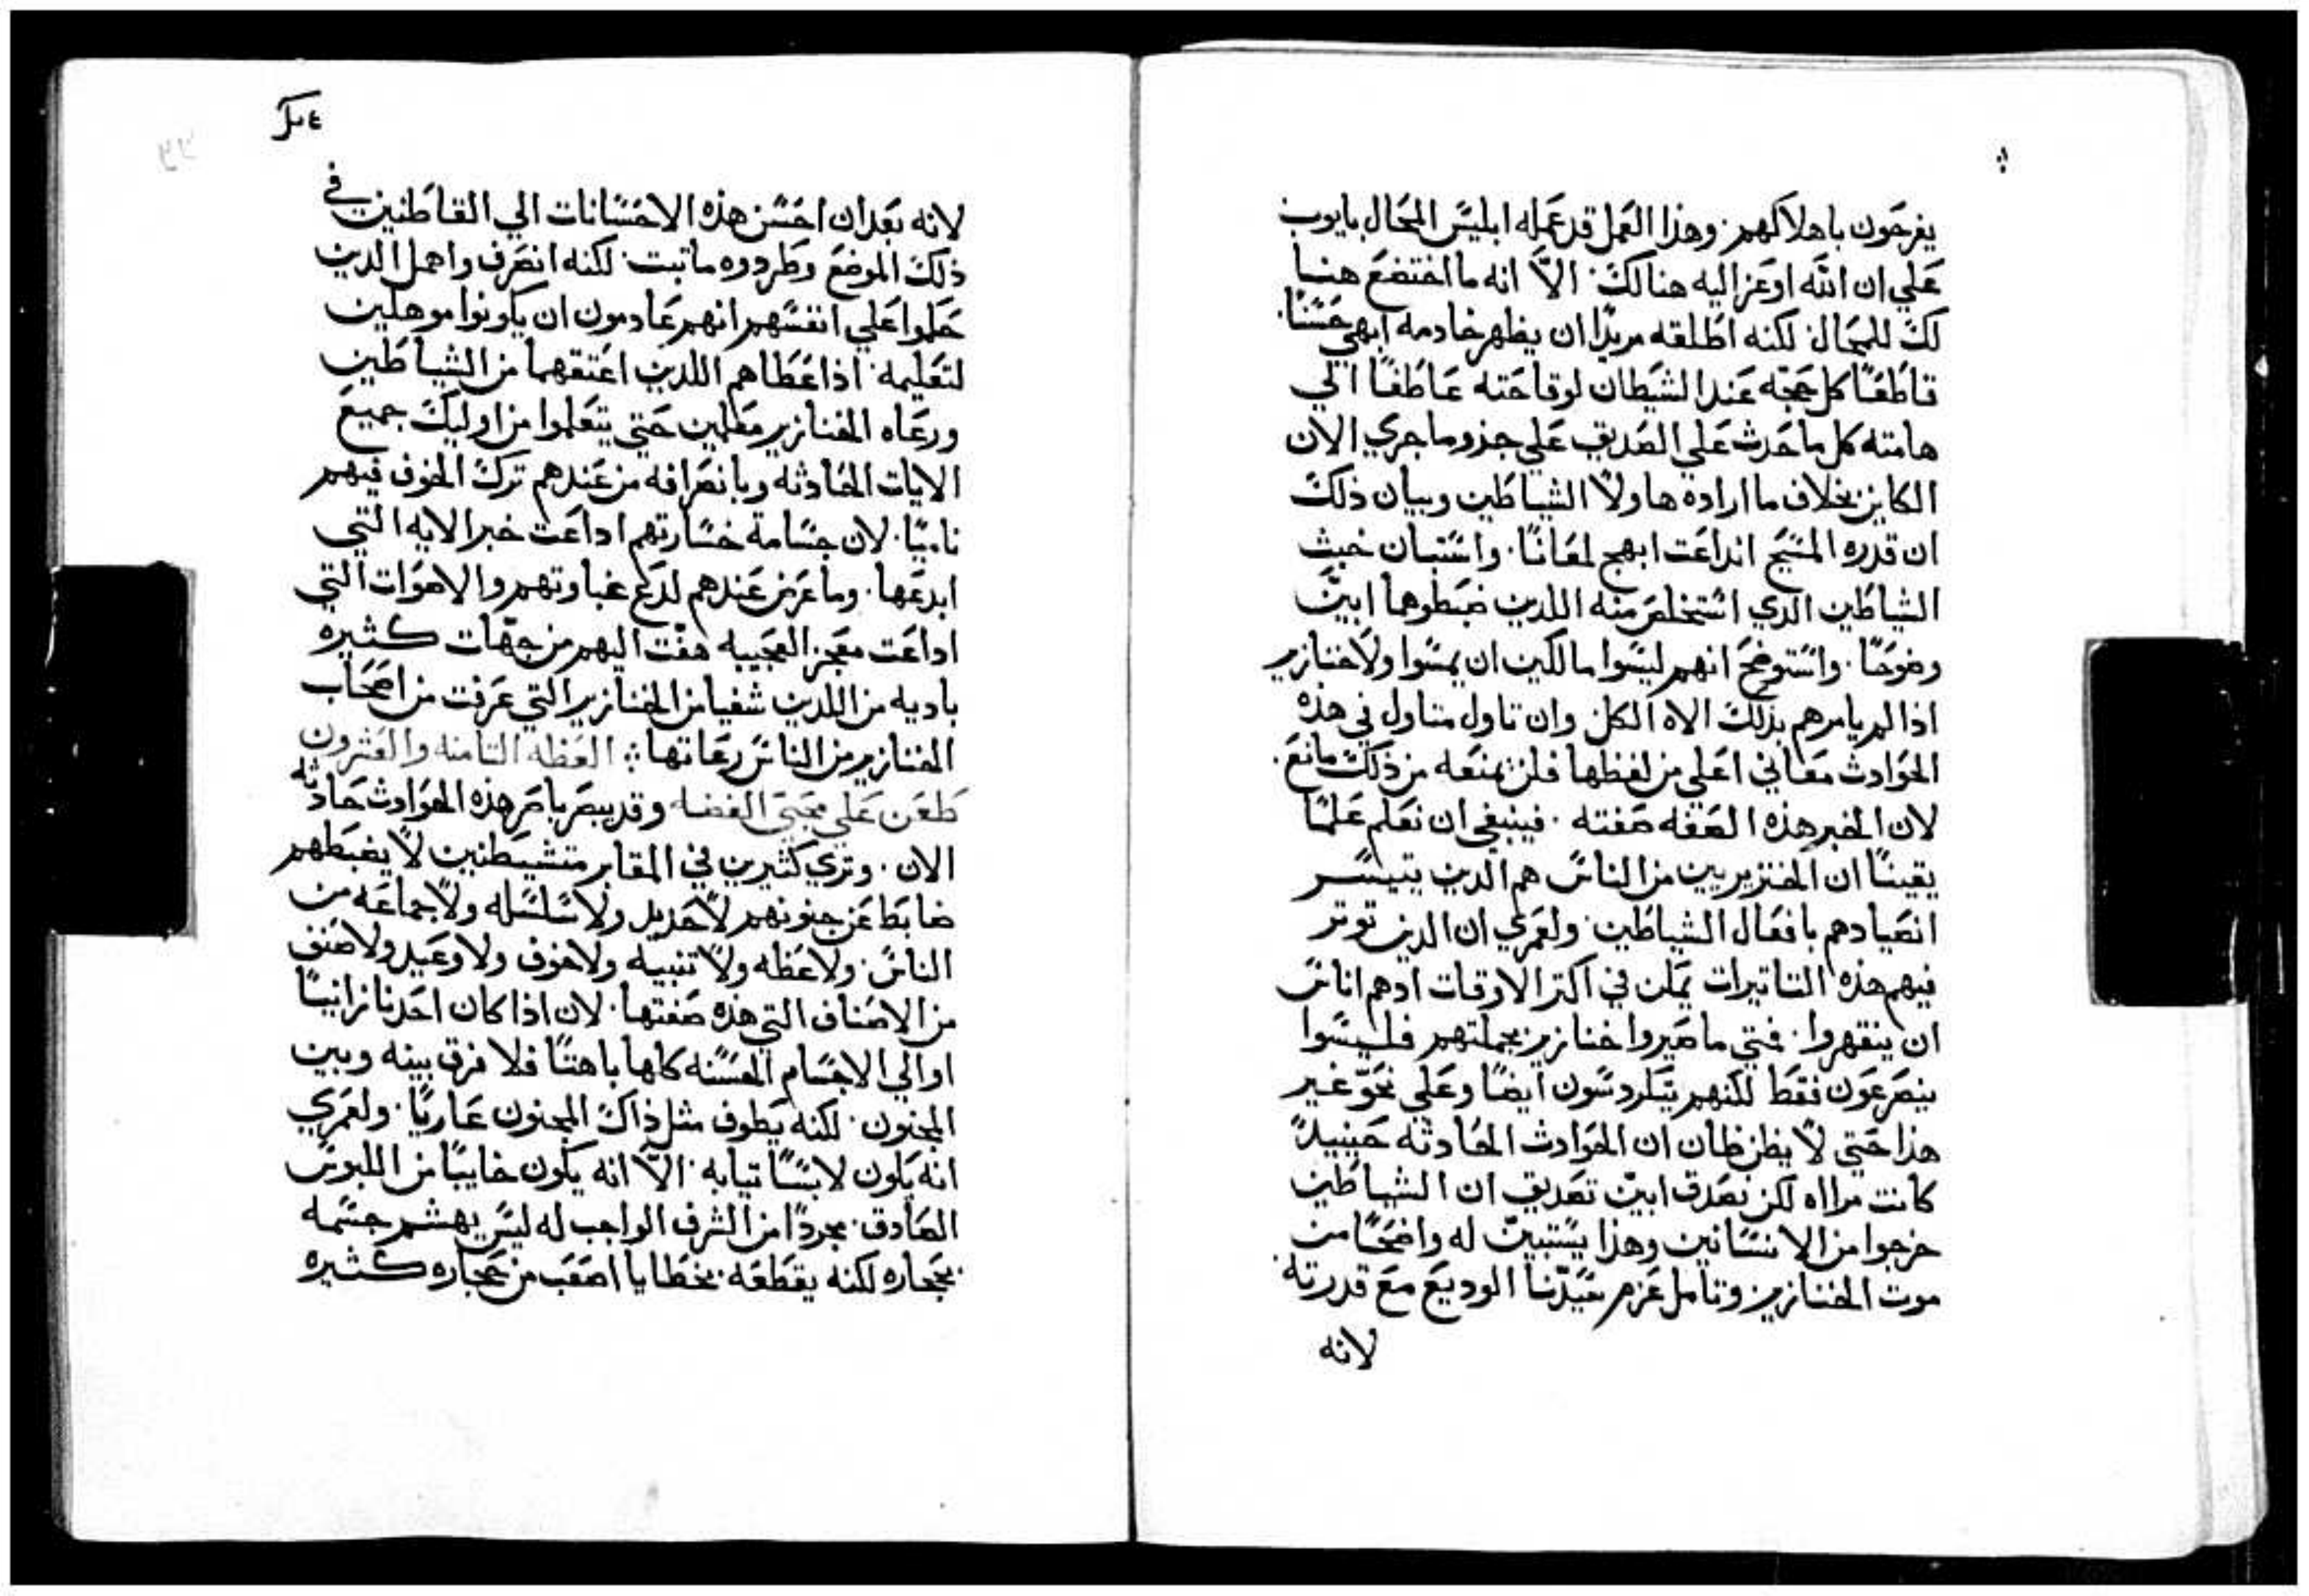 يفرحون باهلاكهم. وهذا العمل قد عمله ابليس المحال بايوب
علي ان الله اوعز اليه هنالك. الاّ انه ما اختضع هنا
لك للمحال. لكنه اطلقه مريدًا ان يظهر خادمه ابهي حسنًا.
قاطعًا كل حجته عند الشيطان لوقاحته عاطفًا الي
هامته كل ما حدث علي الصديق علي جذو ما جري الان
الكاين بخلاف ما اراده هاولا الشياطين وبيان ذلك
ان قدره المسيح انداعت ابهج لمعانًا. واستبان خبث
الشياطين الذي استخلص منه اللدين ضبطوهما ابين
وضوحًا. واستوضح انهم ليسوا مالكين ان يمسوا ولا خنازير
اذا لم يامرهم بذلك الاه الكل وان تاول متاول في هذه
الحوادث معاني اعلي من لفظها فلن يمنعه من ذلك مانع.
لان الخبر هذه الصفه صفته. فينبغي ان نعلم علمًا
يقينًا ان الخنزيريين من الناس هم الدين يتيسر
انصيادهم بافعال الشياطين. ولعمري ان الدين توتر
فيهم هذه التاتيرات يمكن في اكتر الاوقات ادهم اناس
ان ينقهروا. فمتي ما صيروا خنازير بجملتهم فليسوا
ينصرعون فقط لكنهم يتكردسون ايضًا وعلي نحوّ غير
هذا حتي لا يظن ظان ان الحوادث الحادثه حينيدً
كانت مرااه لكن نصدق ابين تصديق ان الشياطين
خرجوا من الانسانين وهذا يستبين له واضحًا من
موت الخنازير. وتامل عزم سيدنا الوديع مع قدرته.
لانه
لانه بعد ان احسن هذه الاحسانات الي القاطنين في
ذلك الموضع وطردوه ما تبت. لكنه انصرف واهمل الدين
حكموا علي انفسهم انهم عادمون ان يكونوا موهلين
لتعليمه. اذ اعطاهم اللدين اعتقهما من الشياطين
ورعاه الخنازير معلمين حتي يتعلموا من اوليك جميع
الايات الحادثه وبانصرافه من عندهم ترك الخوف فيهم
ناميًا. لان جسامة خسارتهم اداعت خبر الايه التي
ابدعها. وما عرض عندهم لدع غباوتهم والاصوات التي
اداعت معجز العجيبه هفّت اليهم من جهات كثيره
باديه من اللدين شفيا من الخنازير التي غرقت من اصحاب
الخنازير من الناس رعاتها. العظه التامنه والعشرون
طعن علي محبي الفضه وقد يبصر باصر هذه الحوادث حادثه
الان. وتري كثيرين في المقابر متشيطنين لا يضبطهم
ضابط عن جنونهم لا حديد ولا سلسله ولا جماعه من
الناس. ولا عظه ولا تنبيه ولا خوف ولا وعيد ولا صنف
من الاصناف التي هذه صفتها. لان اذا كان احدنا زانيًا
او الي الاجسام الحسنه كلها باهتًا فلا فرق بينه وبين
المجنون. لكنه يطوف مثل ذاك المجنون عاريًا. ولعمري
انه يكون لابسًا تيابه. الاّ انه يكون خايبًا من اللبوس
الصادق. مجردًا من الشرف الواجب له ليس يهشم جسمه
بحجاره لكنه يقطعه بخطايا اصعب من حجاره كثيره